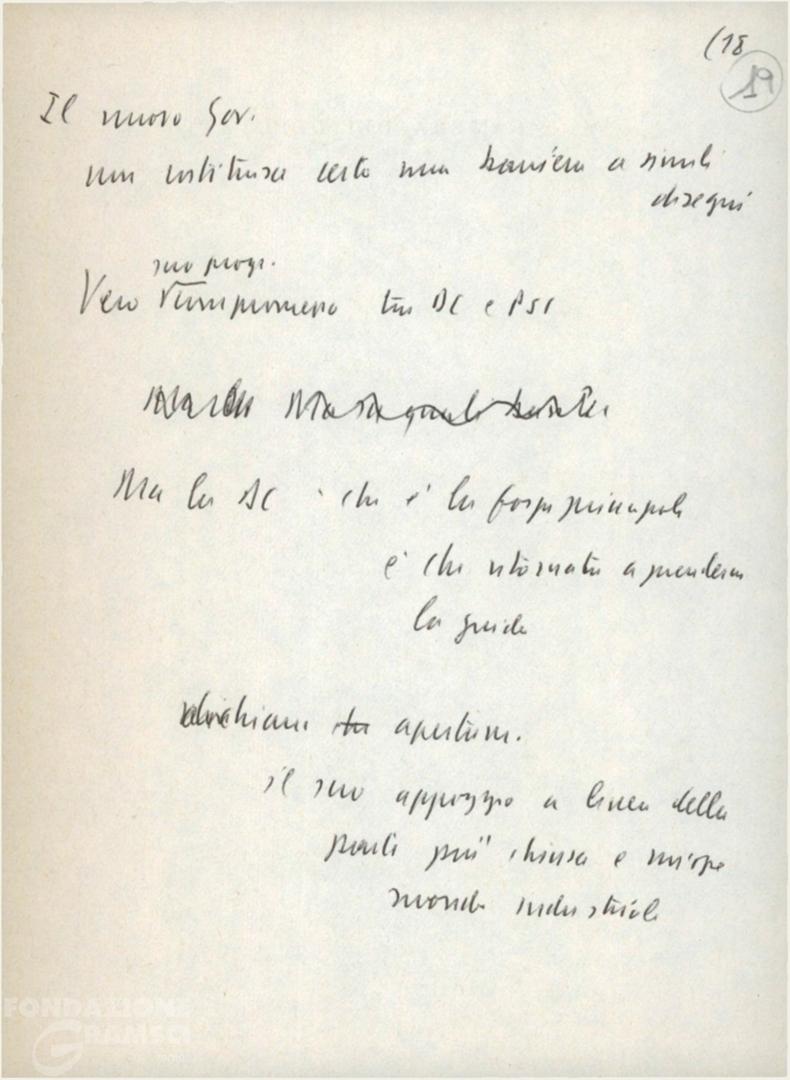 (18
19
Il nuovo Gov.
non costituisce certo una barriera a simili
disegni
suo progr.
Vero compromesso tra DC e PSI
Ma la DC che è la forza principale
è che ritornata a prendere
la guida
dichiara apertam.
il suo appoggio a linea della
parte più chiusa e miope
mondo industriale
FONDAZIONE
GRAMSCI